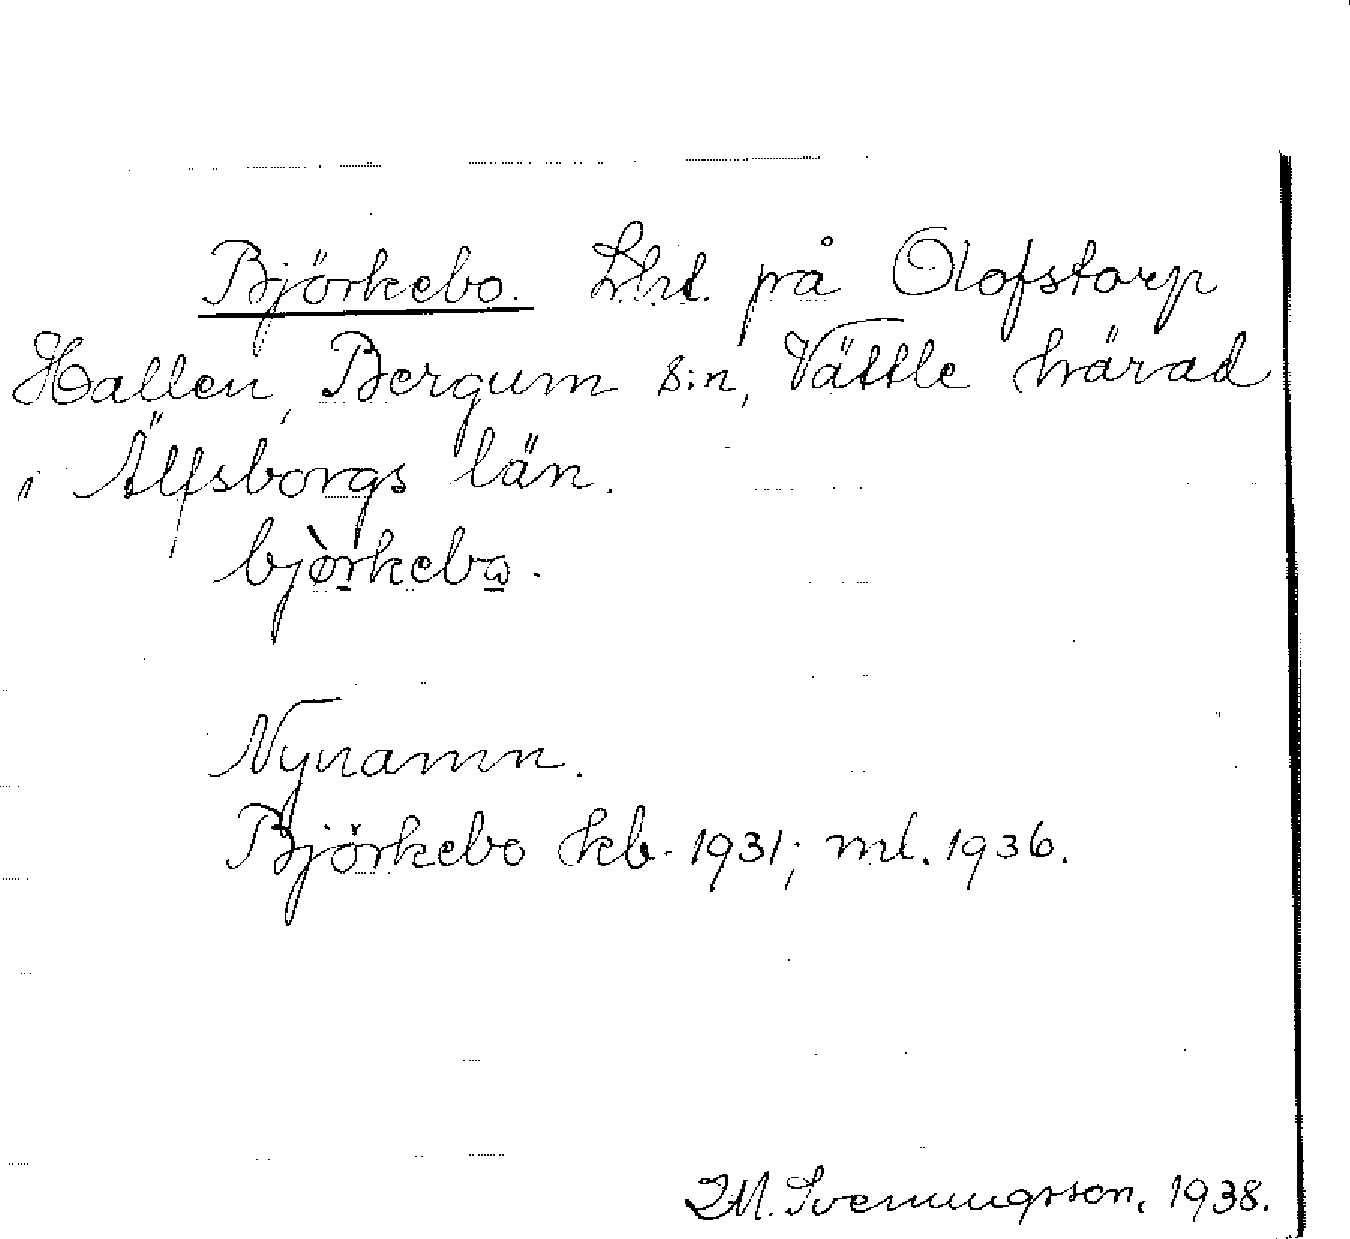 Björkebo. Lht. på Olofstorp
Hallen, Bergum s:n, Vättle härad
i Älfsborgs län.
bjòrkebω.
Nynamn.
Björkebo kb. 1931; ml. 1936.
Svenungsson, 1938.